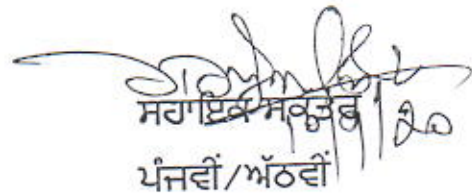 ਸਹਾਇਕ ਸਕੱਤਰ
ਪੰਜਵੀਂ/ਅੱਠਵੀਂ